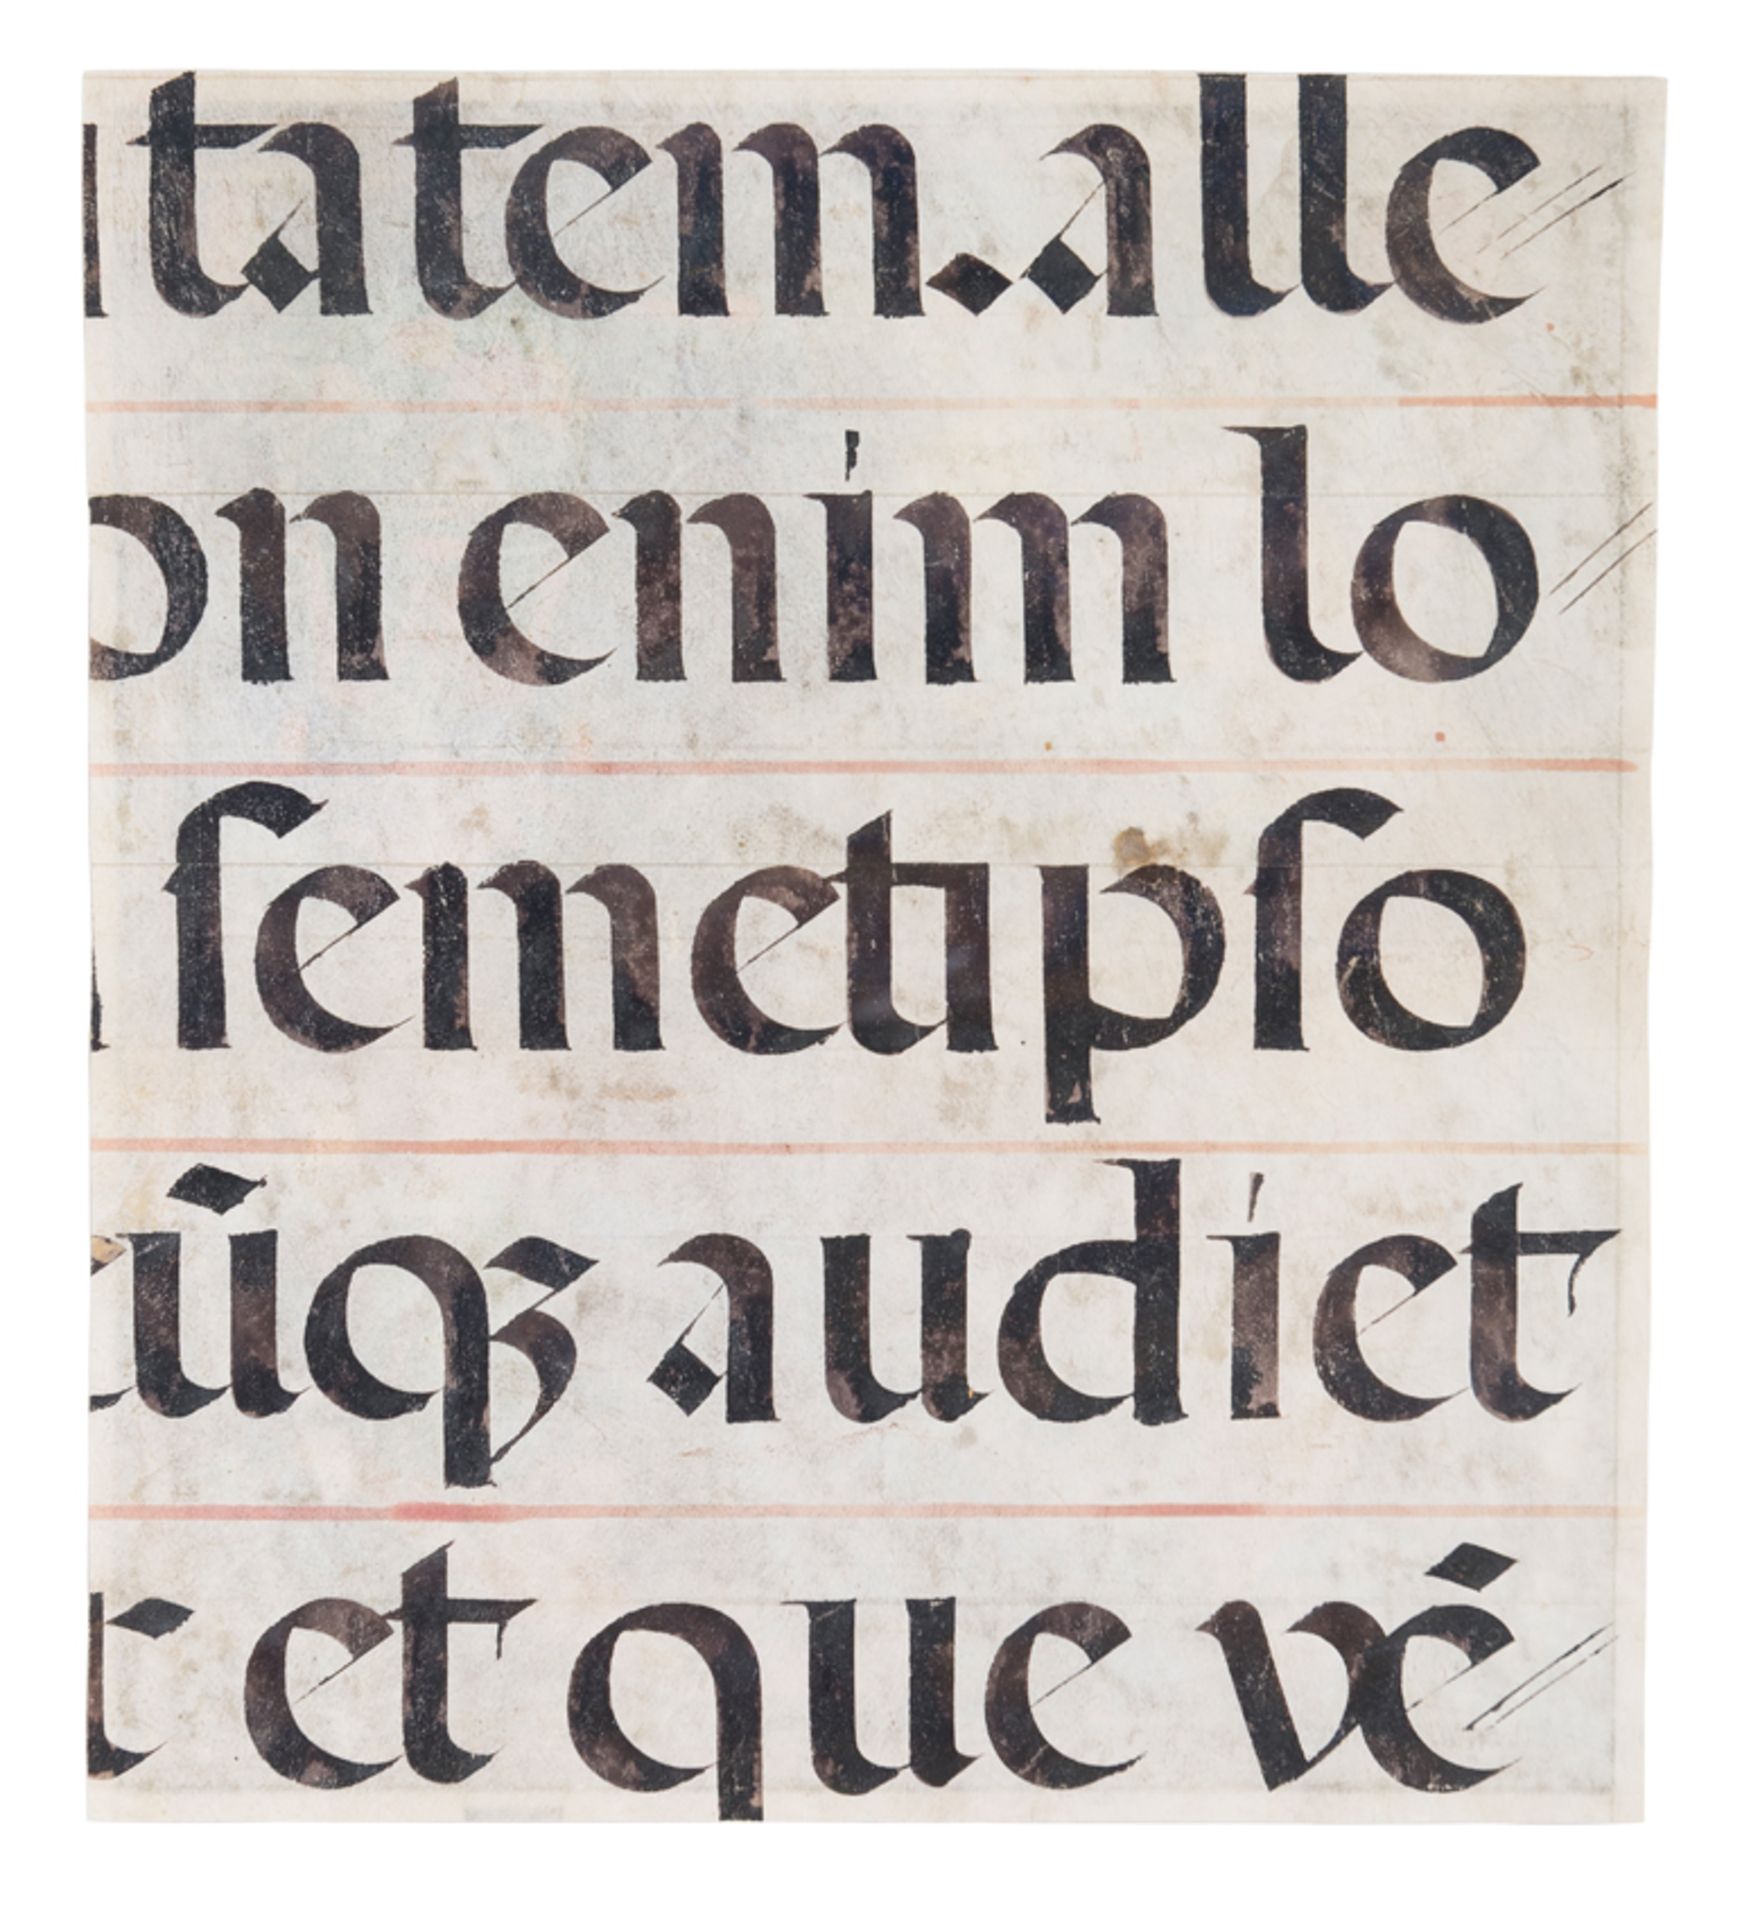 itatem. alle
on enim lo
ſemetipſo
cūqꝫ audiet
r et que vē